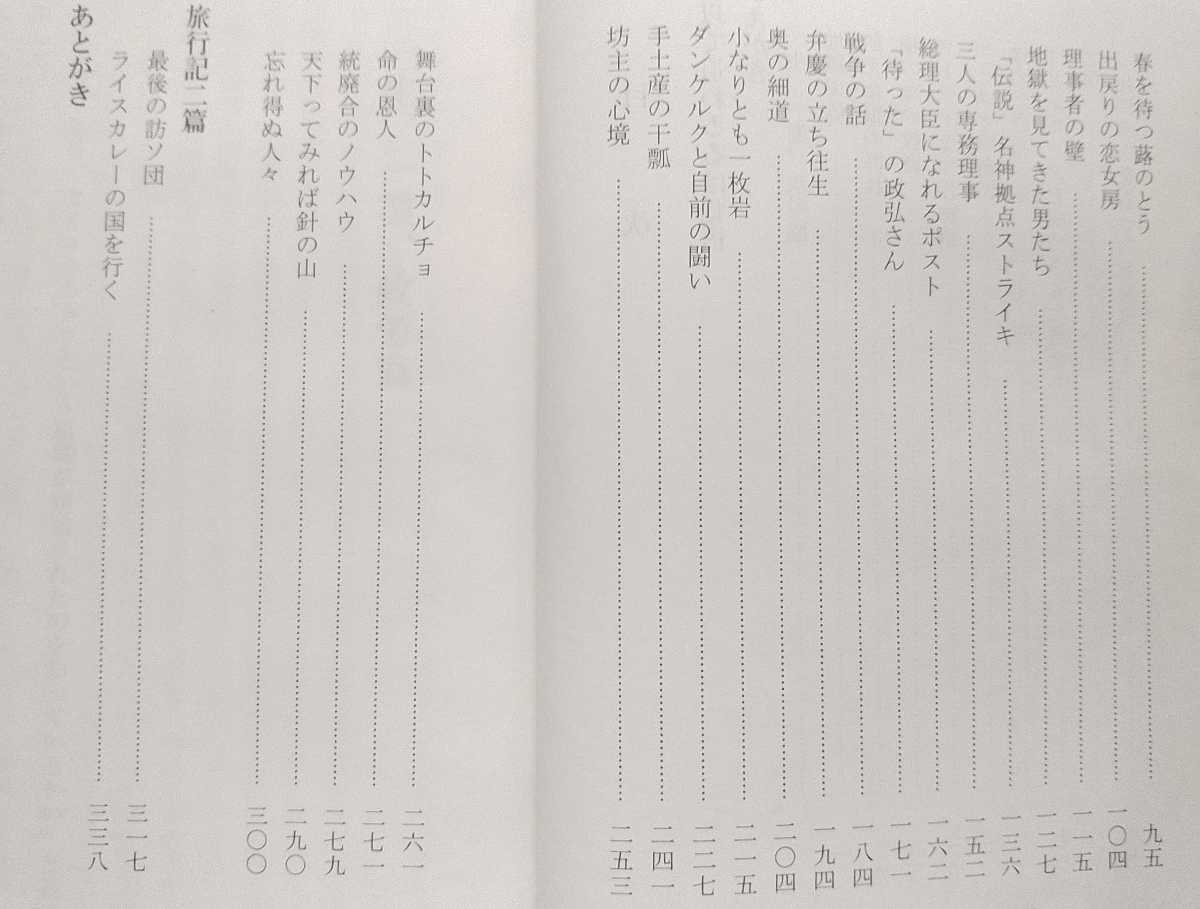 春を待つ蕗のとう……九五
出戻りの恋女房……一〇四
理事者の壁……一一五
地獄を見てきた男たち……一二七
「伝説」名神拠点ストライキ……一三六
三人の専務理事……一五二
総理大臣になれるポスト……一六二
「待った」の政弘さん……一七一
戦争の話……一八四
弁慶の立ち往生……一九四
奥の細道……二〇四
小なりとも一枚岩……二一五
ダンケルクと自前の闘い……二二七
手土産の干瓢……二四一
坊主の心境……二五三
舞台裏のトトカルチョ……二六一
命の恩人……二七一
統廃合のノウハウ……二七九
天下ってみれば針の山……二九〇
忘れ得ぬ人々……三〇〇
旅行記二篇
最後の訪ソ団……三一七
ライスカレーの国を行く……三三八
あとがき